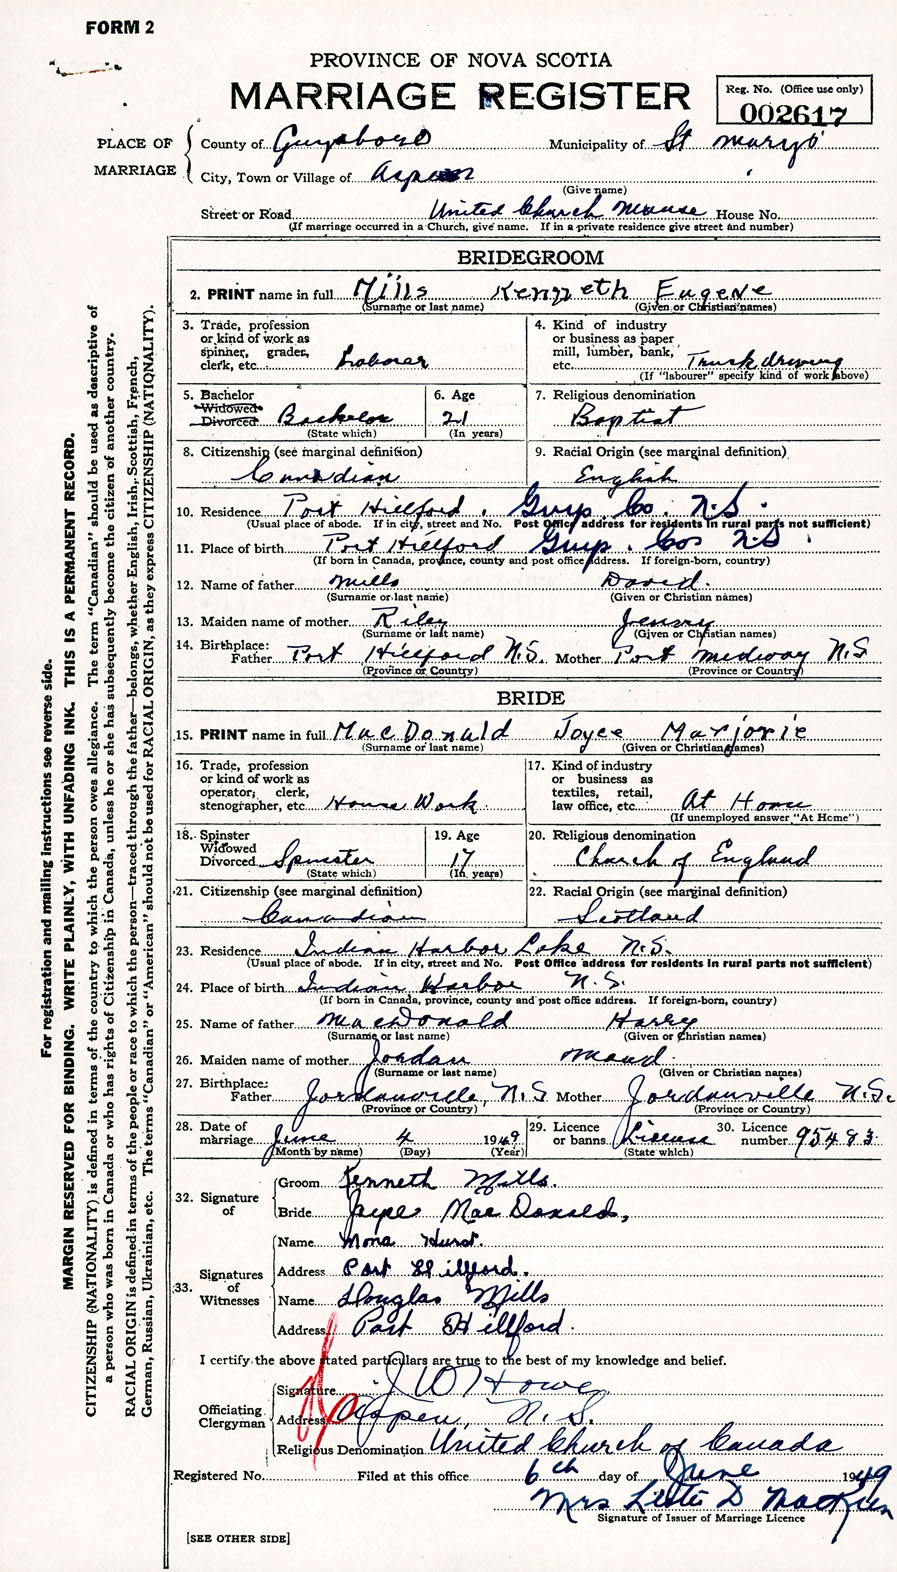 FORM 2
PROVINCE OF NOVA SCOTIA
MARRIAGE REGISTER
Reg. No. (Office use only)
002617
PLACE OF MARRIAGE
County of Guysboro Municipality of St Mary's
City, Town or Village of Aspen
(Give name)
Street or Road United Church Manse House No.
(If marriage occurred in a Church, give name. If in a private residence give street and number)
BRIDEGROOM
2. PRINT name in full Mills Kenneth Eugene
(Surname or last name) (Given or Christian names)
3. Trade, profession or kind of work as spinner, grader, clerk, etc. Laborer
4. Kind of industry or business as paper mill, lumber, bank, etc. Truck driving
(If "labourer" specify kind of work above)
5. Bachelor Widowed Divorced Bachelor
(State which)
6. Age 21
(In years)
7. Religious denomination
Baptist
8. Citizenship (see marginal definition)
Canadian
9. Racial Origin (see marginal definition)
English
10. Residence Port Hillford. Guys. Co. N.S.
(Usual place of abode. If in city, street and No. Post Office address for residents in rural parts not sufficient)
11. Place of birth Port Hillford Guys. Co N S
(If born in Canada, province, county and post office address. If foreign-born, country)
12. Name of father Mills David.
(Surname or last name) (Given or Christian names)
13. Maiden name of mother Riley Jenny
(Surname or last name) (Given or Christian names)
14. Birthplace:
Father Port Hillford N.S. Mother Port Medway N.S
(Province or Country) (Province or Country)
BRIDE
15. PRINT name in full MacDonald Joyce Marjorie
(Surname or last name) (Given or Christian names)
16. Trade, profession or kind of work as operator, clerk, stenographer, etc. House Work.
17. Kind of industry or business as textiles, retail, law office, etc. At Home
(If unemployed answer "At Home")
18. Spinster Widowed Divorced Spinster
(State which)
19. Age 17
(In years)
20. Religious denomination
Church of England
21. Citizenship (see marginal definition)
Canadian
22. Racial Origin (see marginal definition)
Scotland
23. Residence Indian Harbor Lake N.S.
(Usual place of abode. If in city, street and No. Post Office address for residents in rural parts not sufficient)
24. Place of birth Indian Harbor N.S.
(If born in Canada, province, county and post office address. If foreign-born, country)
25. Name of father MacDonald Harry
(Surname or last name) (Given or Christian names)
26. Maiden name of mother Jordan Maud.
(Surname or last name) (Given or Christian names)
27. Birthplace:
Father Jordanville, N.S Mother Jordanville N.S.
(Province or Country) (Province or Country)
28. Date of marriage June 4 1949
(Month by name) (Day) (Year)
29. Licence or banns. License
(State which)
30. Licence number 95483
32. Signature of
Groom Kenneth Mills.
Bride Joyce MacDonald,
33. Signatures of Witnesses
Name Mona Hurst.
Address Port Hillford.
Name Douglas Mills
Address Port Hillford.
I certify the above stated particulars are true to the best of my knowledge and belief.
Officiating Clergyman
Signature J W Howe
Address Aspen, N.S.
Religious Denomination United Church of Canada
Registered No. Filed at this office 6th day of June 1949
Mrs D
Signature of Issuer of Marriage Licence
[SEE OTHER SIDE]
For registration and mailing instructions see reverse side.
MARGIN RESERVED FOR BINDING. WRITE PLAINLY, WITH UNFADING INK. THIS IS A PERMANENT RECORD.
CITIZENSHIP (NATIONALITY) is defined in terms of the country to which the person owes allegiance. The term "Canadian" should be used as descriptive of
a person who was born in Canada or who has rights of Citizenship in Canada, unless he or she has subsequently become the citizen of another country.
RACIAL ORIGIN is defined in terms of the people or race to which the person—traced through the father—belongs, whether English, Irish, Scottish, French,
German, Russian, Ukrainian, etc. The terms "Canadian" or "American" should not be used for RACIAL ORIGIN, as they express CITIZENSHIP (NATIONALITY).